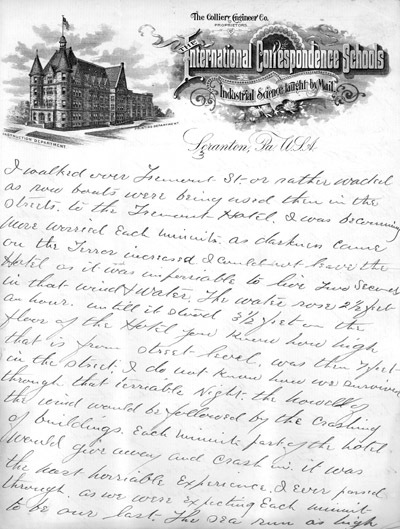 The Colliery Engineer Co.
PROPRIETORS.
THE
International Correspondence Schools
Industrial Science taught by Mail.
INSTRUCTION DEPARTMENT.
PRINTING DEPARTMENT
Scranton, Pa. U.S.A.
I walked over Tremont St. or rather waded
as row boats were being used then in the
streets. to the Tremont Hotel. I was becoming
more worried Each minute. as darkness came
on the Terror increased I could not leave the
Hotel as it was impossible to live Two Seconds
in that wind & water. The water rose 2 1/2 feet
an hour. until it stood 3 1/2 feet on the
floor of the Hotel you know how high
that is from street level. was then 7 feet
in the street. I do not know how we survived
through that terriable Night. the howell of
the wind would be followed by the crashing
of buildings. Each minute part of the hotel
would give away and crash in. it was
the most horriable Experience I ever passed
through. as we were Expecting Each minute
to be our last. The sea run as high